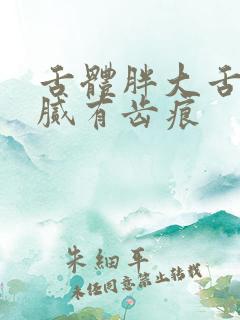 舌體胖大舌
膩有齿痕
朱細平
未经同意禁止转载